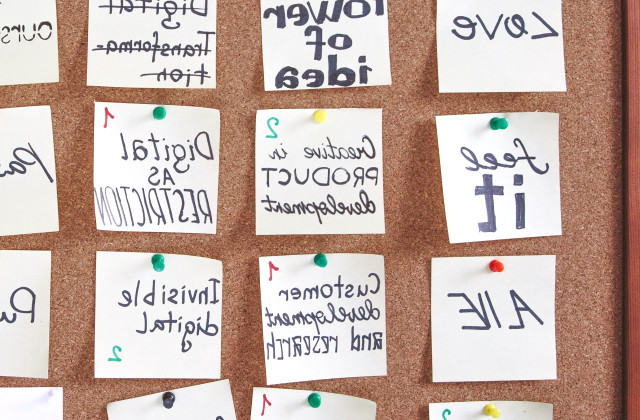 Digital
Transforma-
tion
Power
of
idea
Love
1
Digital
AS
RESTRICTION
2
Creative in
PRODUCT
development
feel
it
Invisible
digital
2
1
Customer
development
and research
1
2